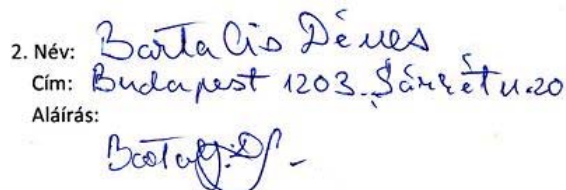 2. Név: Bartalis Dénes
Cím: Budapest 1203. Sárrét u. 20
Aláírás: